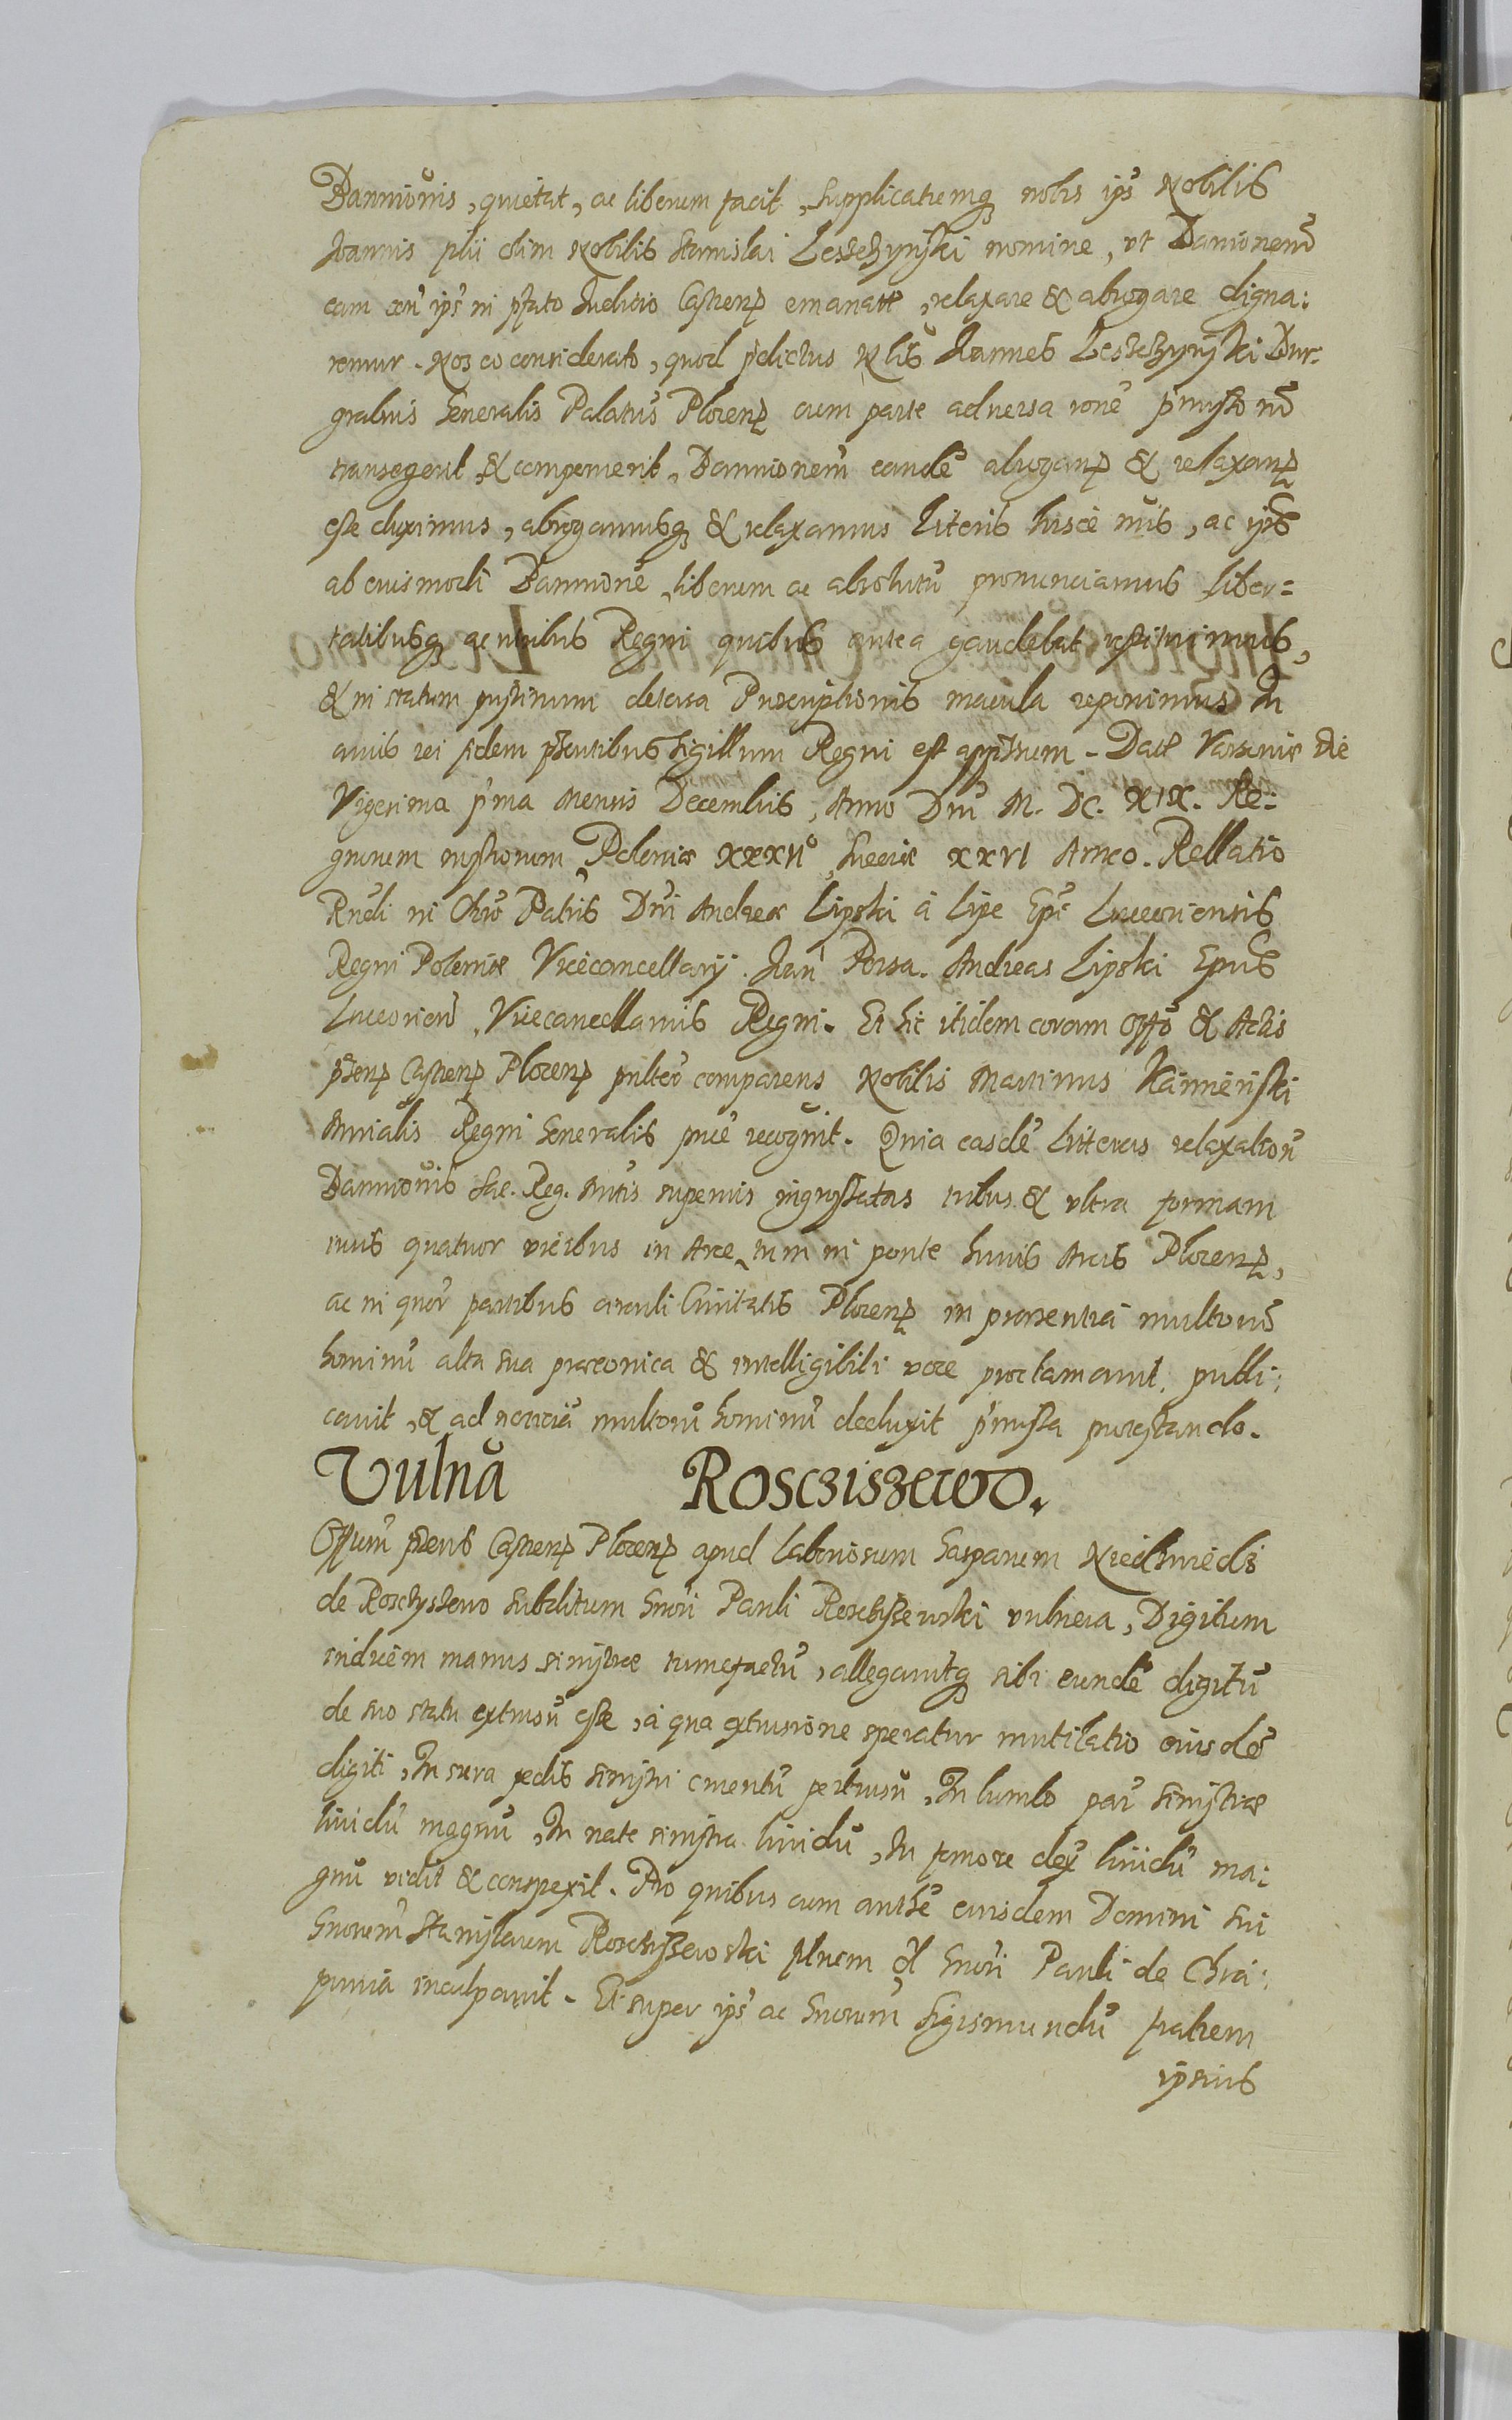 Bannionis, quietat, ac liberum facit, supplicatumq nobis ips Nobilis
Joannis filii olim Nobilis Stanislai Lesschynski nomine, vt Bannionem
eam con ips in pfato Juditio Castren emanatā, relaxare & abrogare digna:
remur. Nos eo considerato, quod pdictus Nlis Joannes Leschynski Bur-
grabius Generalis Palatus Plocen cum parte adversa rone pmissorū
transegerit & composuerit, Bannionem eandē abrogan & relaxan
esse duximus, abrogamusq & relaxamus literis hisce nris, ac ipm
ab eiusmodi Bannione liberum ac absolutū pronunciamus liber=
tatibusq ac iuribus Regni quibus antea gaudebat restituimus,
& in statum pristinum detersa Proscriptionis macula reponimus In
cuius rei fidem pntibus Sigillum Regni est appressum. Dat Varsaviæ die
Vigesima pma Mensis Decembris, Anno Dni M. DC. XIX. Re=
gnorum nostrorum Poloniæ XXXIIº, Sueciæ XXVI Anno. Rellatio
Rndi in Chro Patris Dni Andreæ Lipski à Lipe Epi Luceoriensis
Regni Poloniæ Vicecancellarij. Jan Porsa. Andreas Lipski Epus
Luceorien Vicecancellarius Regni. Et hic itidem coram Offo & Actis
pnen Castren Plocen pulter comparens Nobilis Martinus Kamienski
Mnialis Regni Generalis puce recognit. Quia easdē Literas relaxation
Bannionis Sac. Reg. Mttis superius ingrossatas tribus & vltra formam
iuris quatuor vicibus in Arce, tum in ponte huius Arcis Plocen,
ac in quor partibus circuli Civitatis Plocen in præsentia multorū
hominū alta sua præconica & intelligibili voce proclamavit, publi:
cavit, & ad noticiā multorū hominū deduxit pmissa protestando.
Vulnā Rosciszewo.
Offium pns Castren Plocen apud Laboriosum Gasparum Niedzwiedz
de Rosczyszewo subditum Gnosi Pauli Rosciszewski vulnera, Digitum
indicem manus sinistræ tumefactū, allegavitq sibi eundē digitū
de suo statu extrusū esse, à qua extrusione speratur mutilatio eiusdē
digiti, In sura pedis sinistri cruentū pertusū, In lumbo par sinistræ
lividū magnū, In nate sinistra lividū, In femore dex lividū ma:
gnū vidit & conspexit. Pro quibus cum authē eiusdem Domini sui
Gnosum Stanislaum Rosciszewski filium ol Gnosi Pauli de Chra:
ponia inculpavit. Et super ips ac Gnosum Sigismundū fratrem
ipsius